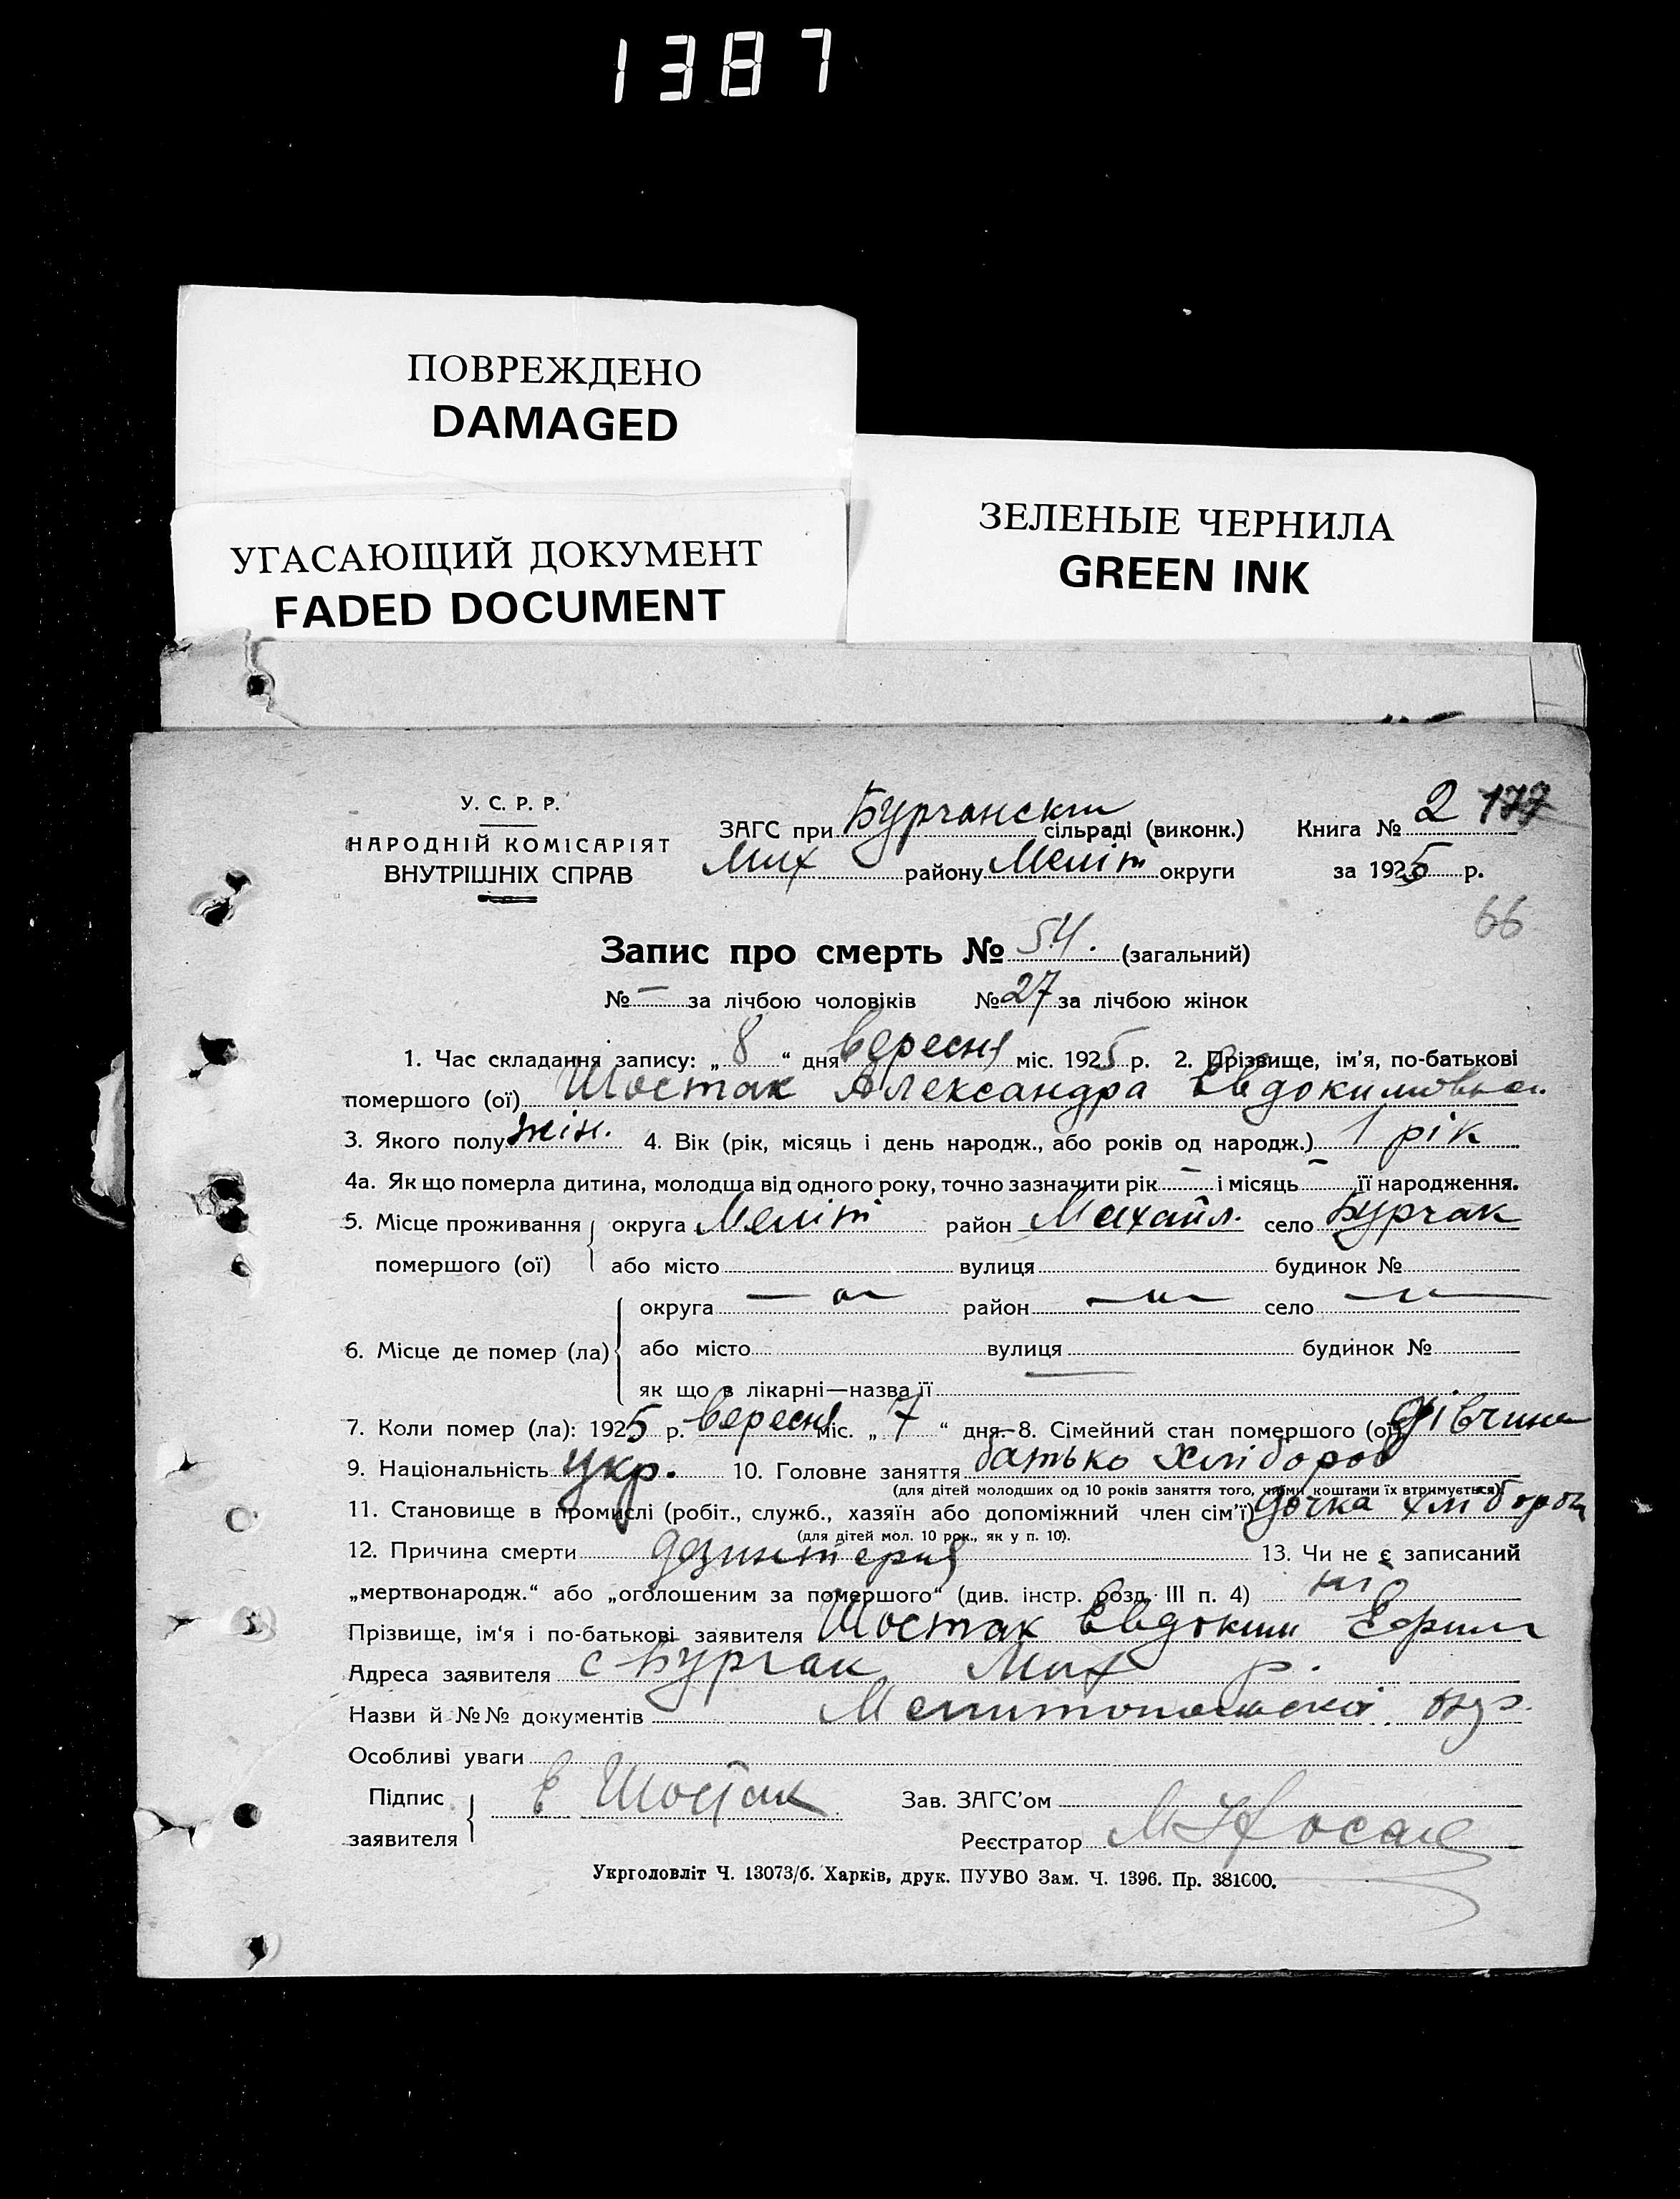 1387
ПОВРЕЖДЕНО
DAMAGED
УГАСАЮЩИЙ ДОКУМЕНТ
FADED DOCUMENT
ЗЕЛЕНЫЕ ЧЕРНИЛА
GREEN INK
У. С. Р. Р.
НАРОДНІЙ КОМІСАРІЯТ
ВНУТРІШНІХ СПРАВ
ЗАГС при Бурчанскій сільраді (виконк.)
Мих району Меліт округи
Книга № 2 177
за 1925 р.
66
Запис про смерть № 54. (загальний)
№ — за лічбою чоловіків № 27 за лічбою жінок
1. Час складання запису: „ 8 “ дня вересня міс. 1925 р. 2. Прізвище, ім’я, по-батькові
помершого (ої) Шостак Александра Евдокимовна
3. Якого полу жін. 4. Вік (рік, місяць і день народж., або років од народж.) 1 рік
4а. Як що померла дитина, молодша від одного року, точно зазначити рік — і місяць — її народження.
5. Місце проживання помершого (ої) округа Меліт район Михайл. село Бурчак
або місто вулиця будинок №
6. Місце де помер (ла) округа —„— район —„— село —„—
або місто вулиця будинок №
як що в лікарні—назва її
7. Коли помер (ла): 1925 р. вересня міс. „ 7 “ дня. 8. Сімейний стан помершого (ої) дівчина
9. Національність укр. 10. Головне заняття батько хлібороб
(для дітей молодших од 10 років заняття того, чиїми коштами їх втримується)
11. Становище в промислі (робіт., служб., хазяїн або допоміжний член сім’ї) дочка хлібороба
(для дітей мол. 10 рок., як у п. 10).
12. Причина смерти дзинтерия 13. Чи не є записаний
„мертвонародж.“ або „оголошеним за помершого“ (див. інстр. розд. III п. 4) ні
Прізвище, ім’я і по-батькові заявителя Шостак Евдоким Ефим
Адреса заявителя с Бурчак Мих р.
Назви й №№ документів Мелитопольскої окр.
Особливі уваги
Підпис заявителя Е Шостак
Зав. ЗАГС’ом
Реєстратор М Носа
Укрголовліт Ч. 13073/б. Харків, друк. ПУУВО Зам. Ч. 1396. Пр. 381000.